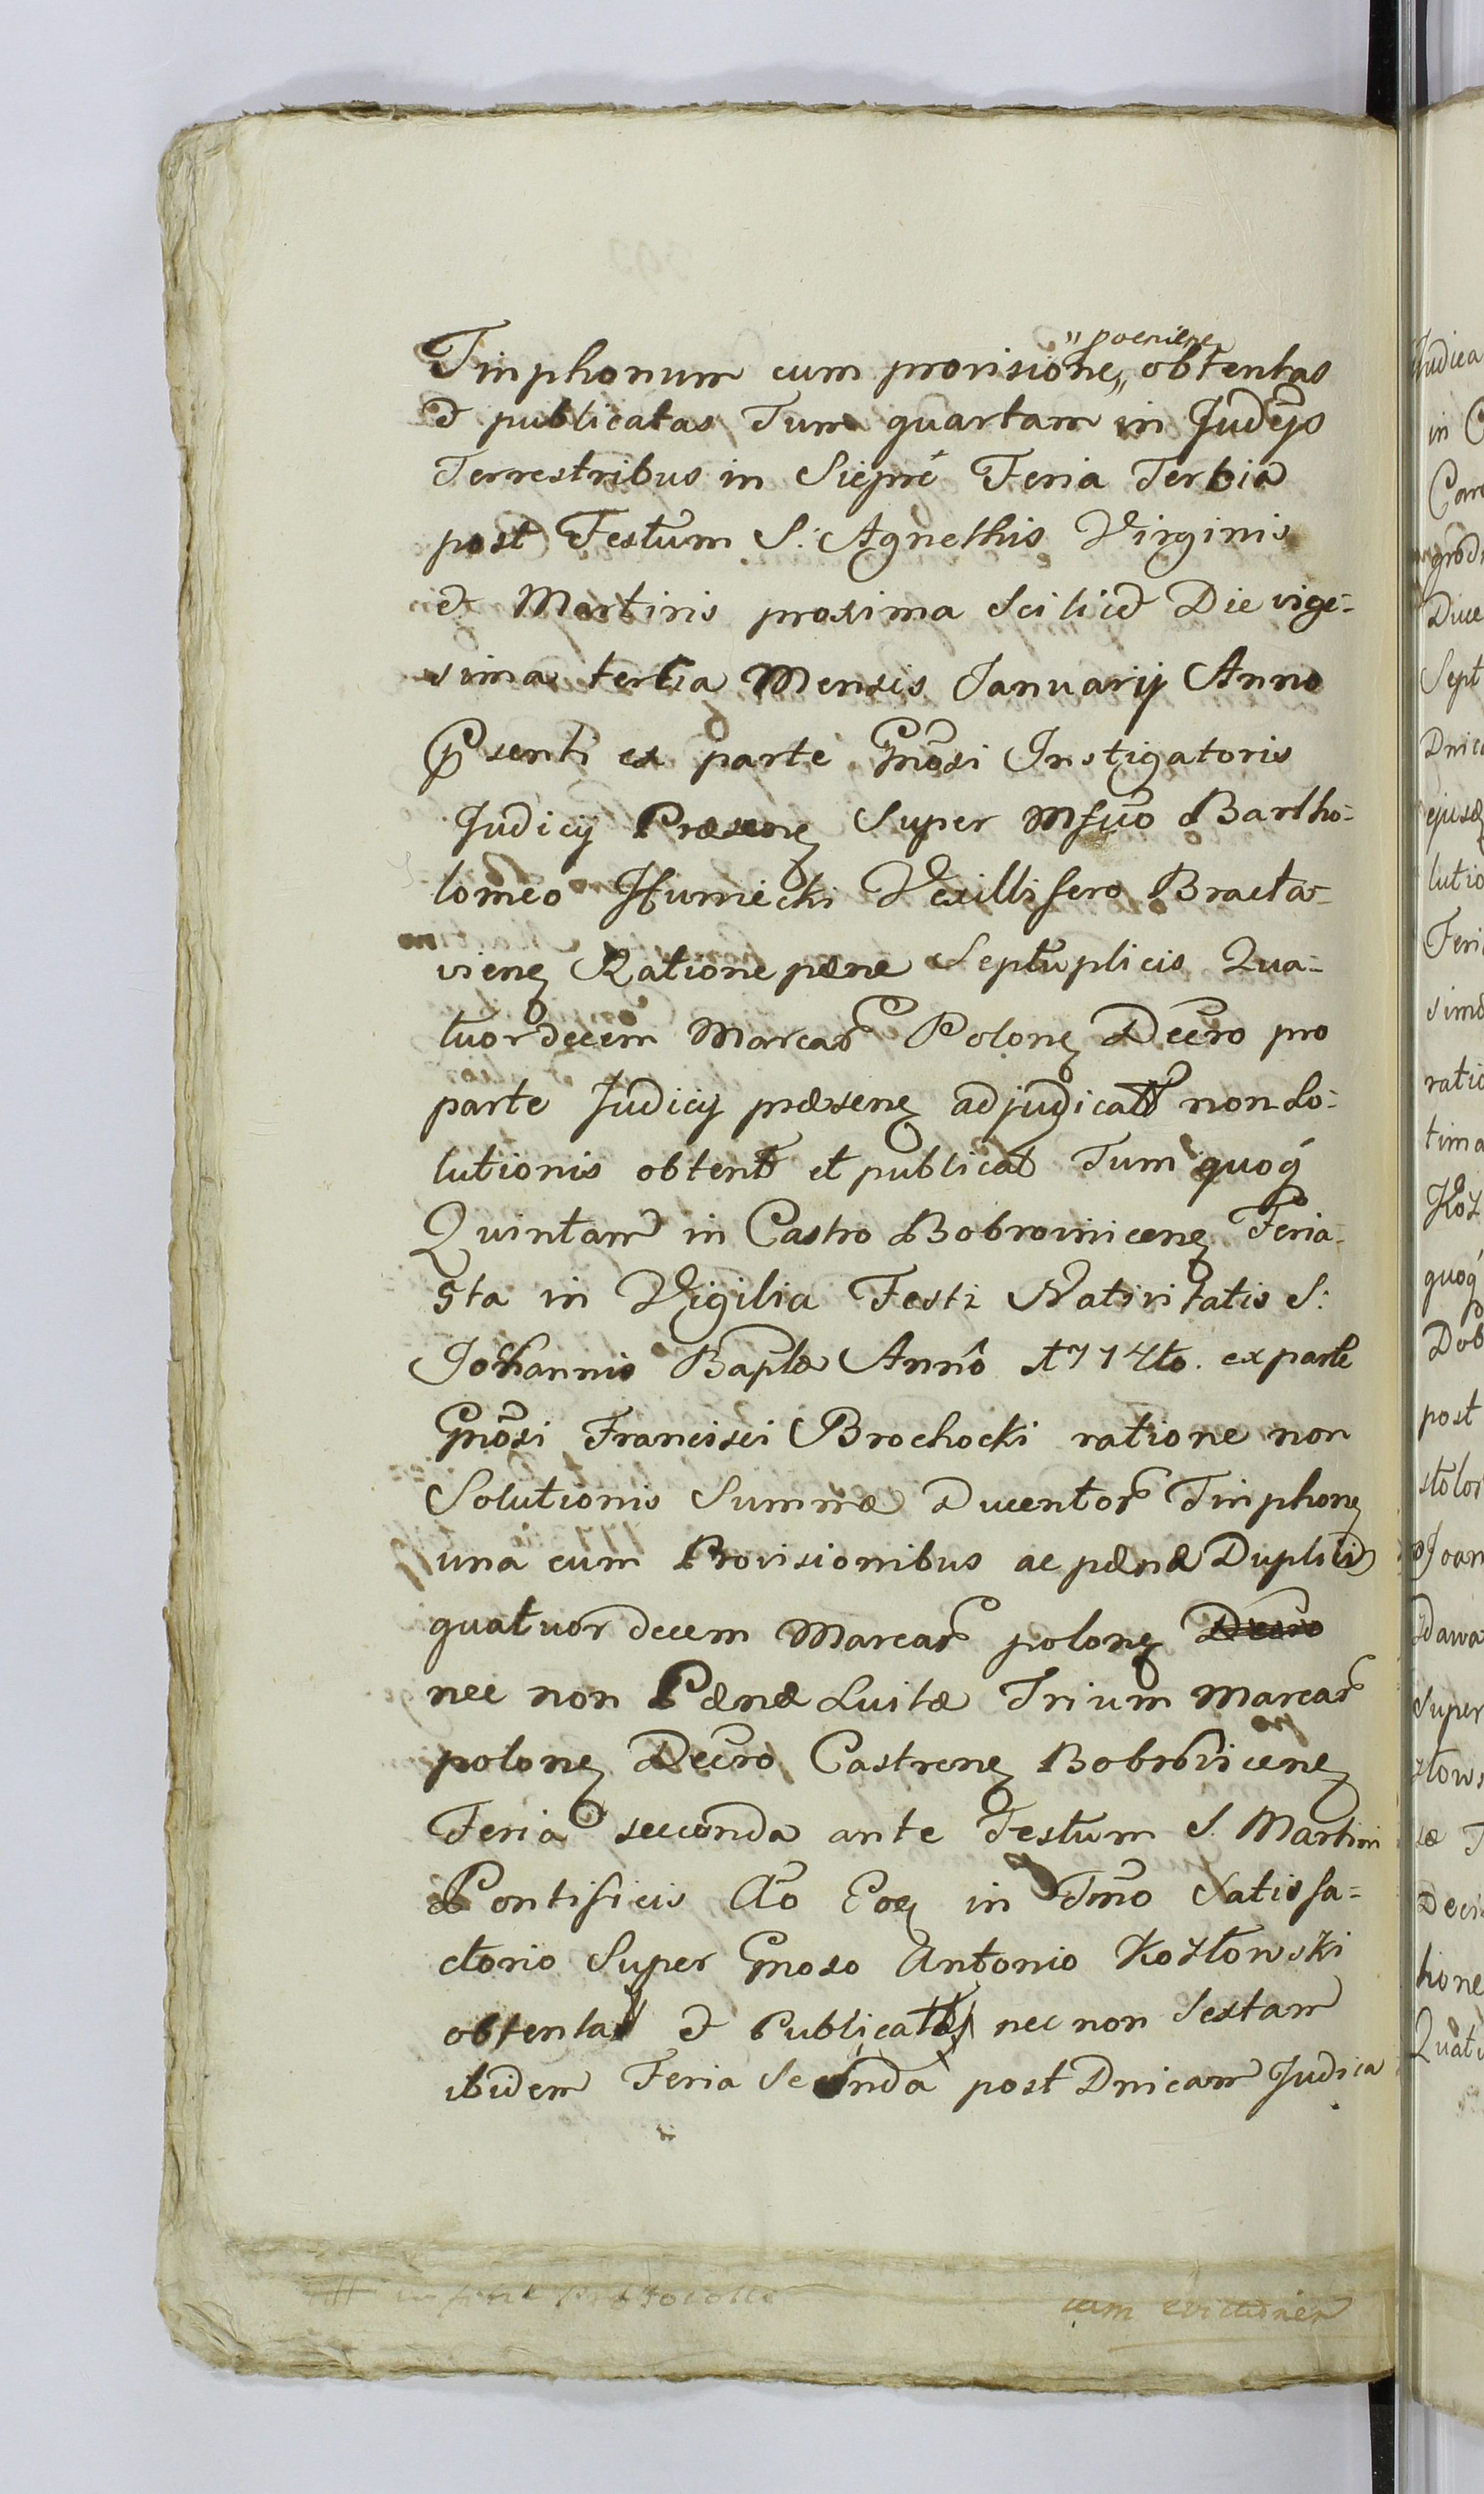 Tinphonum cum provisione,, obtentas
et publicatas Tum quartam in Judcÿs
Terrestribus in Siepre Feria Tertia
post Festum S: Agnethis Virginis
et Martiris proxima scilicet Die vige=
sima tertia Mensis Januarij Anno
Psenti ex parte Gnosi Instigatoris
Judicij Præsens Super Mfico Bartho=
lomeo Humiecki Vexillifero Bracta=
viens Ratione pænæ Septuplicis Qua=
tuordecem Marcar Polons Decro pro
parte Judicij præsens adjudicatt non So=
lutionis obtent et publicat Tum quoq
Quintam in Castro Bobrowinicens Feria
5ta in Vigilia Festi Nativitatis S:
Johannis Baptæ Anno 1714to. ex parte
Gnosi Francisci Brochocki ratione non
Solutionis Summæ Ducentor Tinphons
una cum Provisionibus ac pænæ Duplicis
quatuordecem Marcar polons Decro
nec non Pænæ Luitæ Trium Marcar
polons Decro Castrens Bobrovicens
Feria secunda ante Festum S. Martini
Pontificis Ao Eoq in Tmno Satisfa=
ctorio Super Gnoso Antonio Kozłowski
obtentas et Publicatt nec non Sextam
ibidem Feria Secunda post Dnicam Judica